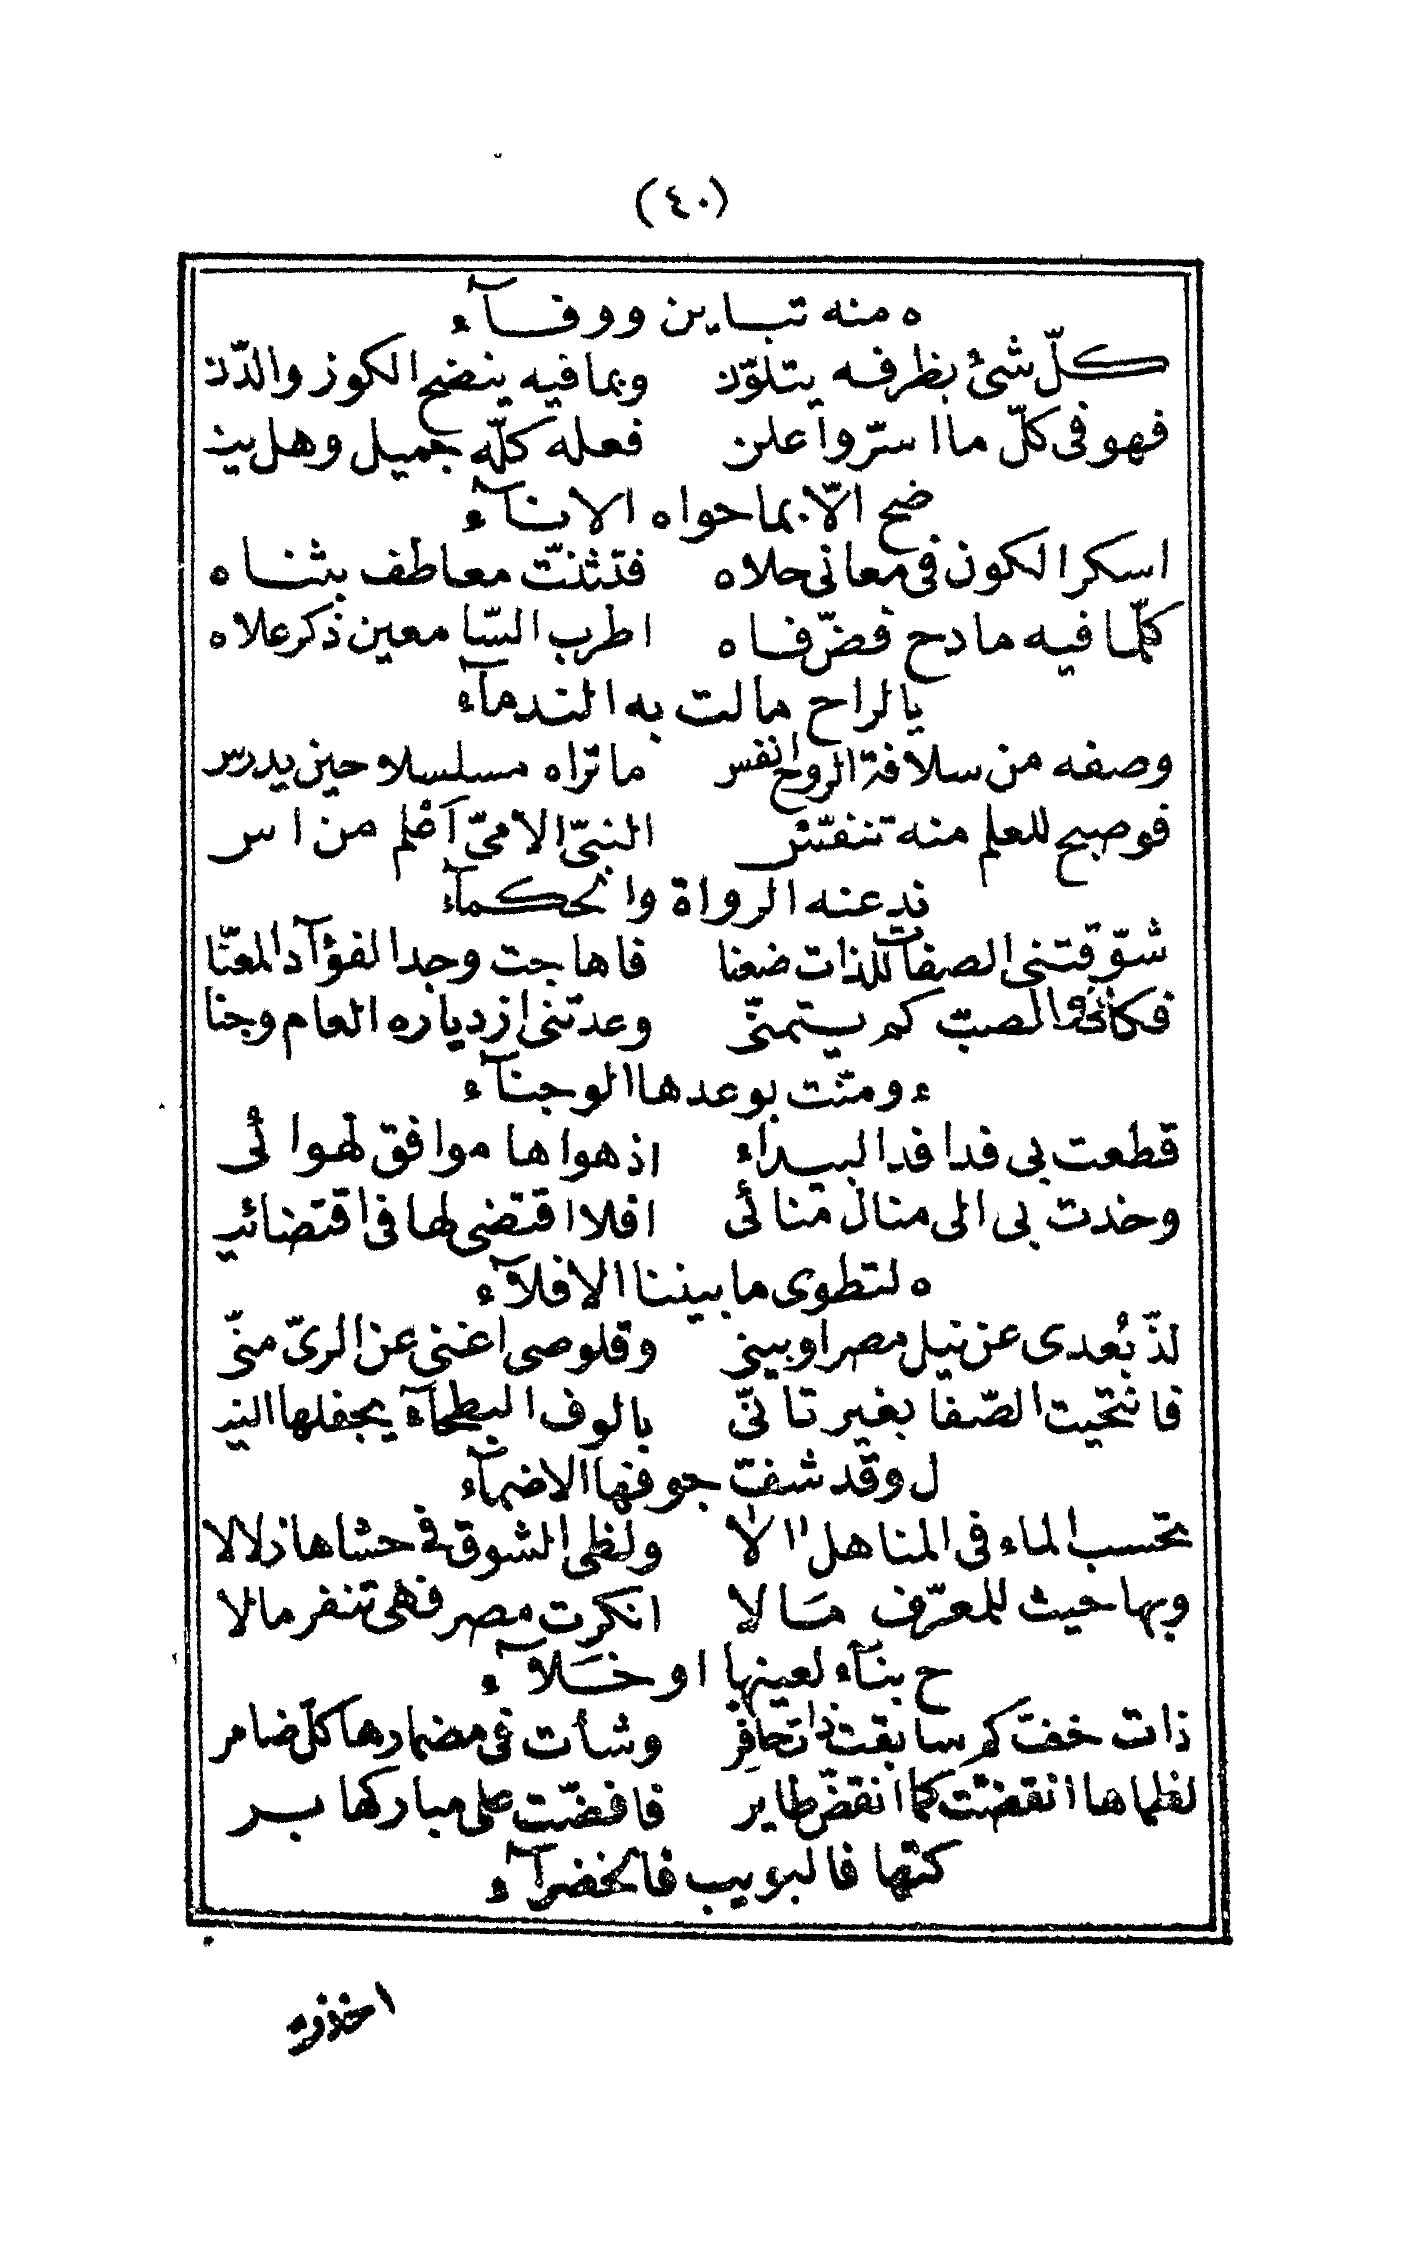 (٤٠)
ه منه تباين ووفآء
كلّ شئ بظرفه يتلوّن وبما فيه ينضح الكوز والدّن
فهو فى كلّ ما اسرّ واعلن فعله كلّه جميل وهل ين
ضح الاّ بما حواه الانآء
اسكر الكون فى معانى حلاه فتثنّت معاطف بثناه
كلّما فيه مادح فضّ فاه اطرب السّامعين ذكر علاه
يالراح مالت به الندمآء
وصفه من سلافة الروح انفس ما تراه مسلسلا حين يدرس
فوصبح للعلم منه تنفّس النبىّ الامىّ آعلم من اس
ند عنه الرواة والحكمآء
شوّقتنى الصفات للذات ضعنا فاهاجت وجد الفؤآد المعنّا
فكانى والصب كم يتمنّى وعدتنى ازدياره العام وجنا
ء ومنّت بوعدها الوجنآء
قطعت بى فدافد البيداء اذ هواها موافق لهوائى
وخدت بى الى منال منائى افلا اقتضى لها فى اقتضائي
ه لتطوى ما بيننا الافلآء
لذّ بُعدى عن نيل مصر وبينى وقلوصى اغنى عن الرىّ منّى
فانتحيت الصّفا بغير تانّى بالوف البطحآء يجفلها الني
ل وقد شفت جوفها الاضمآء
تحسب الماء فى المناهل الا ولظى الشوق فى حشاها زلالا
وبها حيث للمعرّف مَالا انكرت مصر فهى تنفر مالا
ح بنآء لعينها او خَلآء
ذات خفت كم سابقت ذات حافر وشأت فى مضمارها كلّ ضامر
لظماها انقضت كما انقضّ طاير فافضّت على مباركها بر
كتها فالبويب فالخضرآء